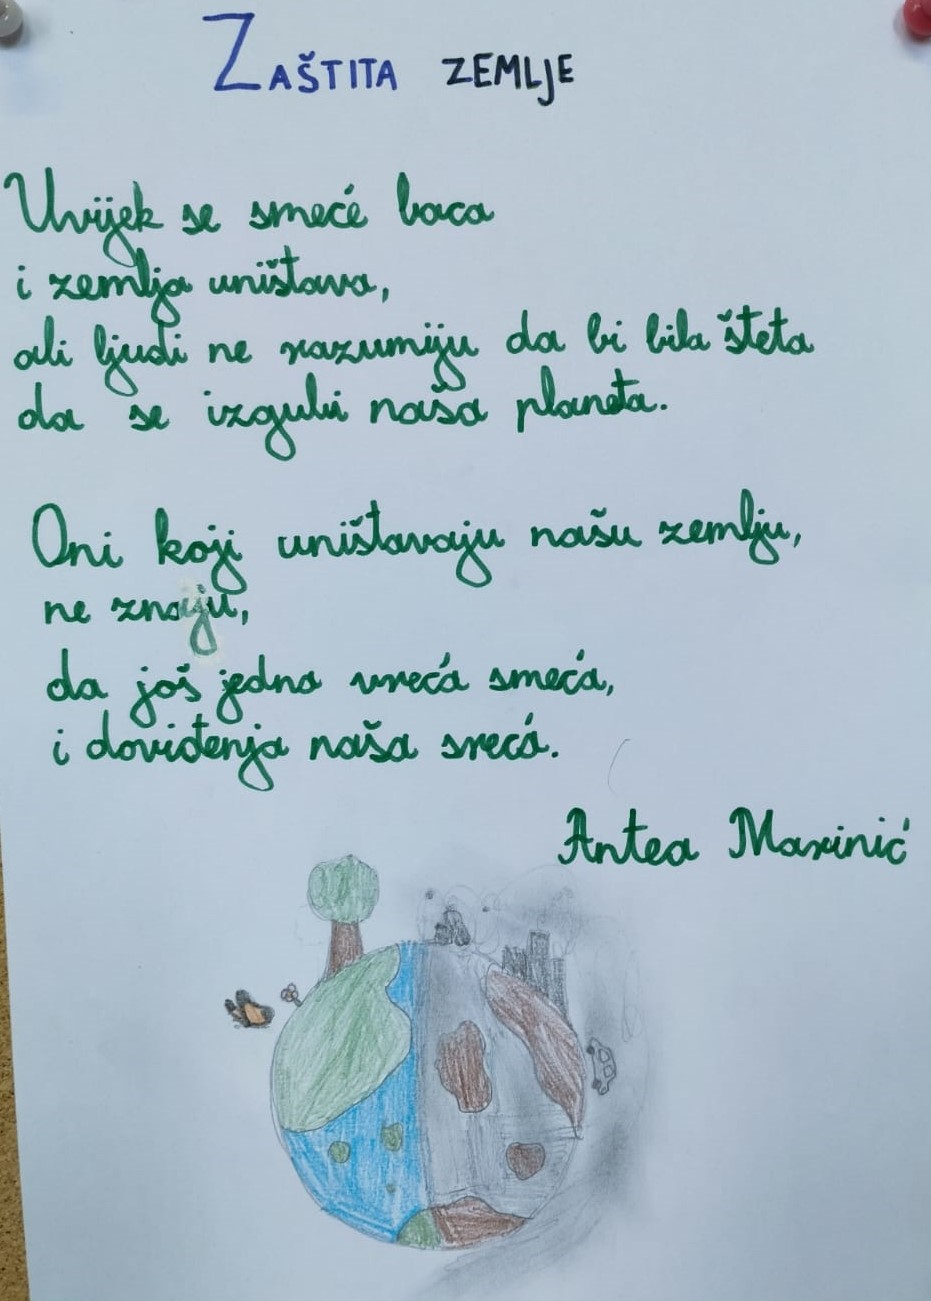 ZAŠTITA ZEMLJE
Uvijek se smeće baca
i zemlja uništava,
ali ljudi ne razumiju da bi bila šteta
da se izgubi naša planeta.
Oni koji uništavaju našu zemlju,
ne znaju,
da još jedna vreća smeća,
i doviđenja naša sreća.
Antea Marinić